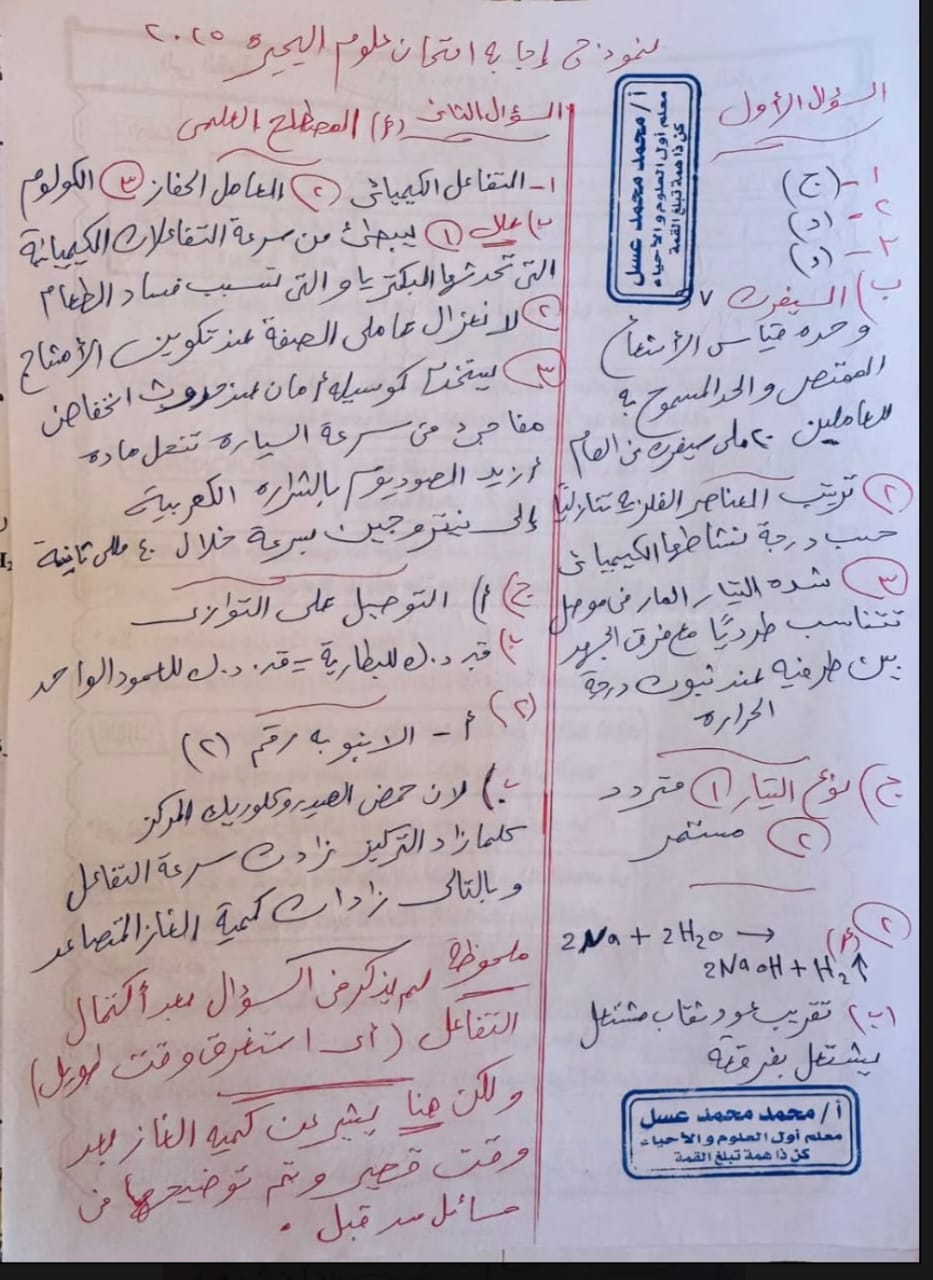 نموذج إجابة امتحان علوم البحيرة ٢٠٢٥
السؤال الأول
أ/ محمد محمد عسل
معلم أول العلوم والأحياء
كن ذا همة تبلغ القمة
١- (ج)
٢- (د)
٣- (د)
ب) السيفرت
وحده قياس الأشعاع
الممتص والحد المسموح به
للعاملين ٢٠ ملى سيفرت فى العام
(٢) ترتيب العناصر الفلزية تنازليًا
حسب درجة نشاطها الكيميائى
(٣) شده التيار المار فى موصل
تتناسب طرديًا مع فرق الجهد
بين طرفيه عند ثبوت درجة
الحراره
ج) نوع التيار (١) متردد
(٢) مستمر
(٢) (أ) 2Na + 2H2O →
2NaOH + H2↑
(ب) تقريب عود ثقاب مشتعل
يشتعل بفرقعة
أ/ محمد محمد عسل
معلم أول العلوم والأحياء
كن ذا همة تبلغ القمة
السؤال الثانى (أ) المصطلح العلمى
١- التفاعل الكيميائى (٢) العامل الحفاز (٣) الكولوم
ب) علل (١) يبطئ من سرعة التفاعلات الكيميائية
التى تحدثها البكتريا والتى تسبب فساد الطعام
(٢) لانعزال عاملى الصفة عند تكوين الأمشاج
(٣) يستخدم كوسيله أمان عند حدوث انخفاض
مفاجئ فى سرعة السياره تنحل ماده
أزيد الصوديوم بالشراره الكهربية
إلى نيتروجين بسرعة خلال ٤٠ مللى ثانية
ج) أ) التوصيل على التوازى
ب) قد.ك للبطارية = قد.ك للعمود الواحد
(٢) أ - الانبوبه رقم (٢)
ب) لان حمض الهيدروكلوريك المركز
كلما زاد التركيز زادت سرعة التفاعل
وبالتالى زادات كمية الغاز المتصاعد
ملحوظة لم يذكر فى السؤال بعد أكتمال
التفاعل (أى استغرق وقت طويل)
ولكن هنا يشير عن كميه الغاز بعد
وقت قصير وتم توضيحها فى
مسائل من قبل .